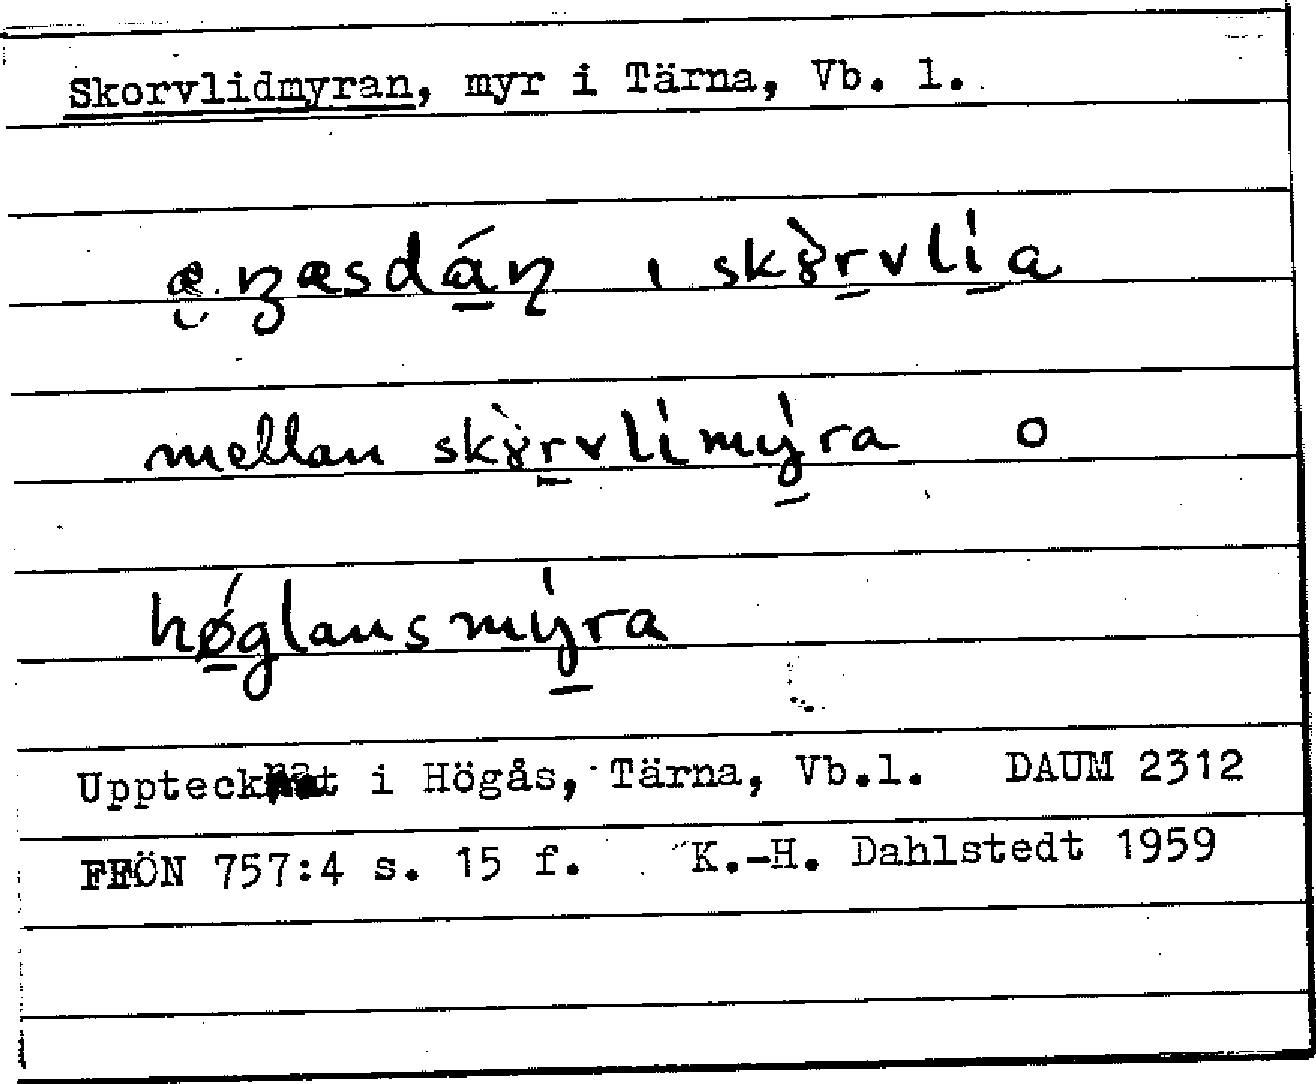 Skorvlidmyran, myr i Tärna, Vb. l.
mellan skɤ̀rvlímýra o
høglansmýra
Upptecknat i Högås, Tärna, Vb.l. DAUM 2312
FFÖN 757:4 s. 15 f. K.-H. Dahlstedt 1959